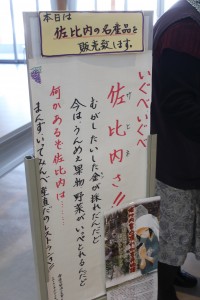 本日は
佐比内の名産品を
販売致します。
いぐべいぐべ
佐比内さ!!
むがしたいした金が採れだんだど
今は、うんめぇ果物 野菜がいっぺとれるんだど
何があるも佐比内は……
まんず、いてみんべ 産直だのレストランさ